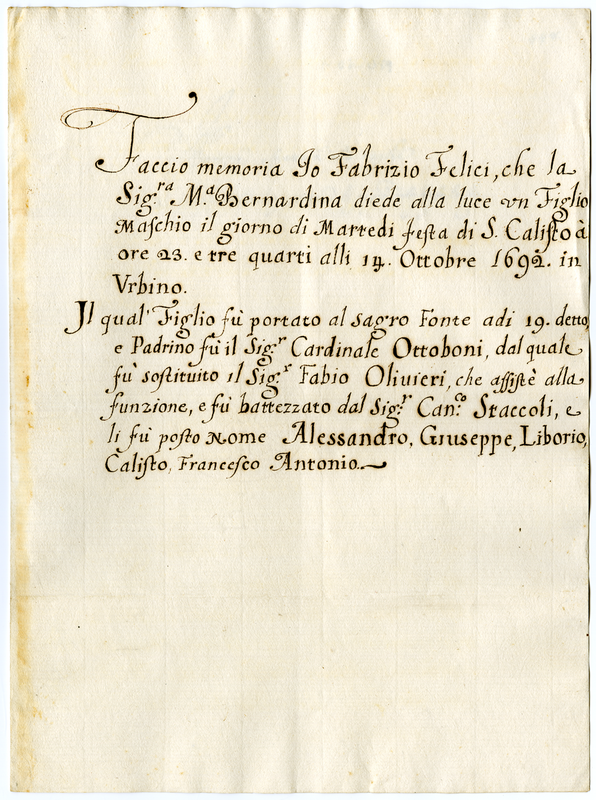 Faccio memoria Io Fabrizio Felici, che la
Sig.ra M.a Bernardina diede alla luce vn Figlio
Maschio il giorno di Martedi festa di S. Calisto à
ore 23. e tre quarti alli 14. Ottobre 1692. in
Vrbino.
Il qual' Figlio fù portato al sagro Fonte adi 19. detto,
e Padrino fù il Sig.r Cardinale Ottoboni, dal quale
fu' sostituito il Sig.r Fabio Oliuieri, che assistè alla
funzione, e fù battezzato dal Sig.r Can.co Staccoli, e
li fù posto Nome Alessandro, Giuseppe, Liborio,
Calisto, Francesco Antonio.